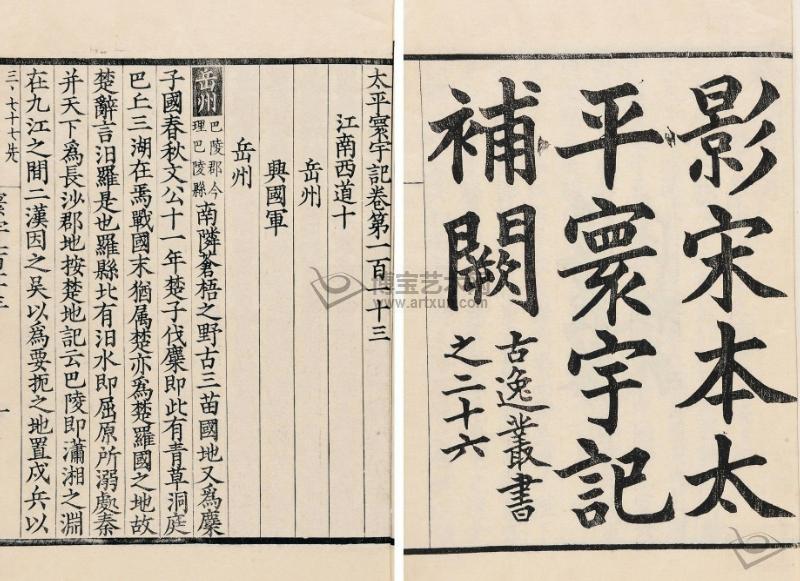 影宋本太
平寰宇記
補闕
古逸叢書
之二十六
太平寰宇記卷第一百十三
江南西道十
岳州
興國軍
岳州
岳州巴陵郡今理巴陵縣南隣蒼梧之野古三苗國地又爲麋
子國春秋文公十一年楚子伐麋即此有青草洞庭
巴丘三湖在焉戰國末猶属楚亦爲楚羅國之地故
楚辭言汨羅是也羅縣北有汨水即屈原所溺處秦
并天下爲長沙郡地按楚地記云巴陵即瀟湘之淵
在九江之間二漢因之吳以爲要扼之地置戍兵以
三、七十七先
博宝艺术网
www.artxun.com